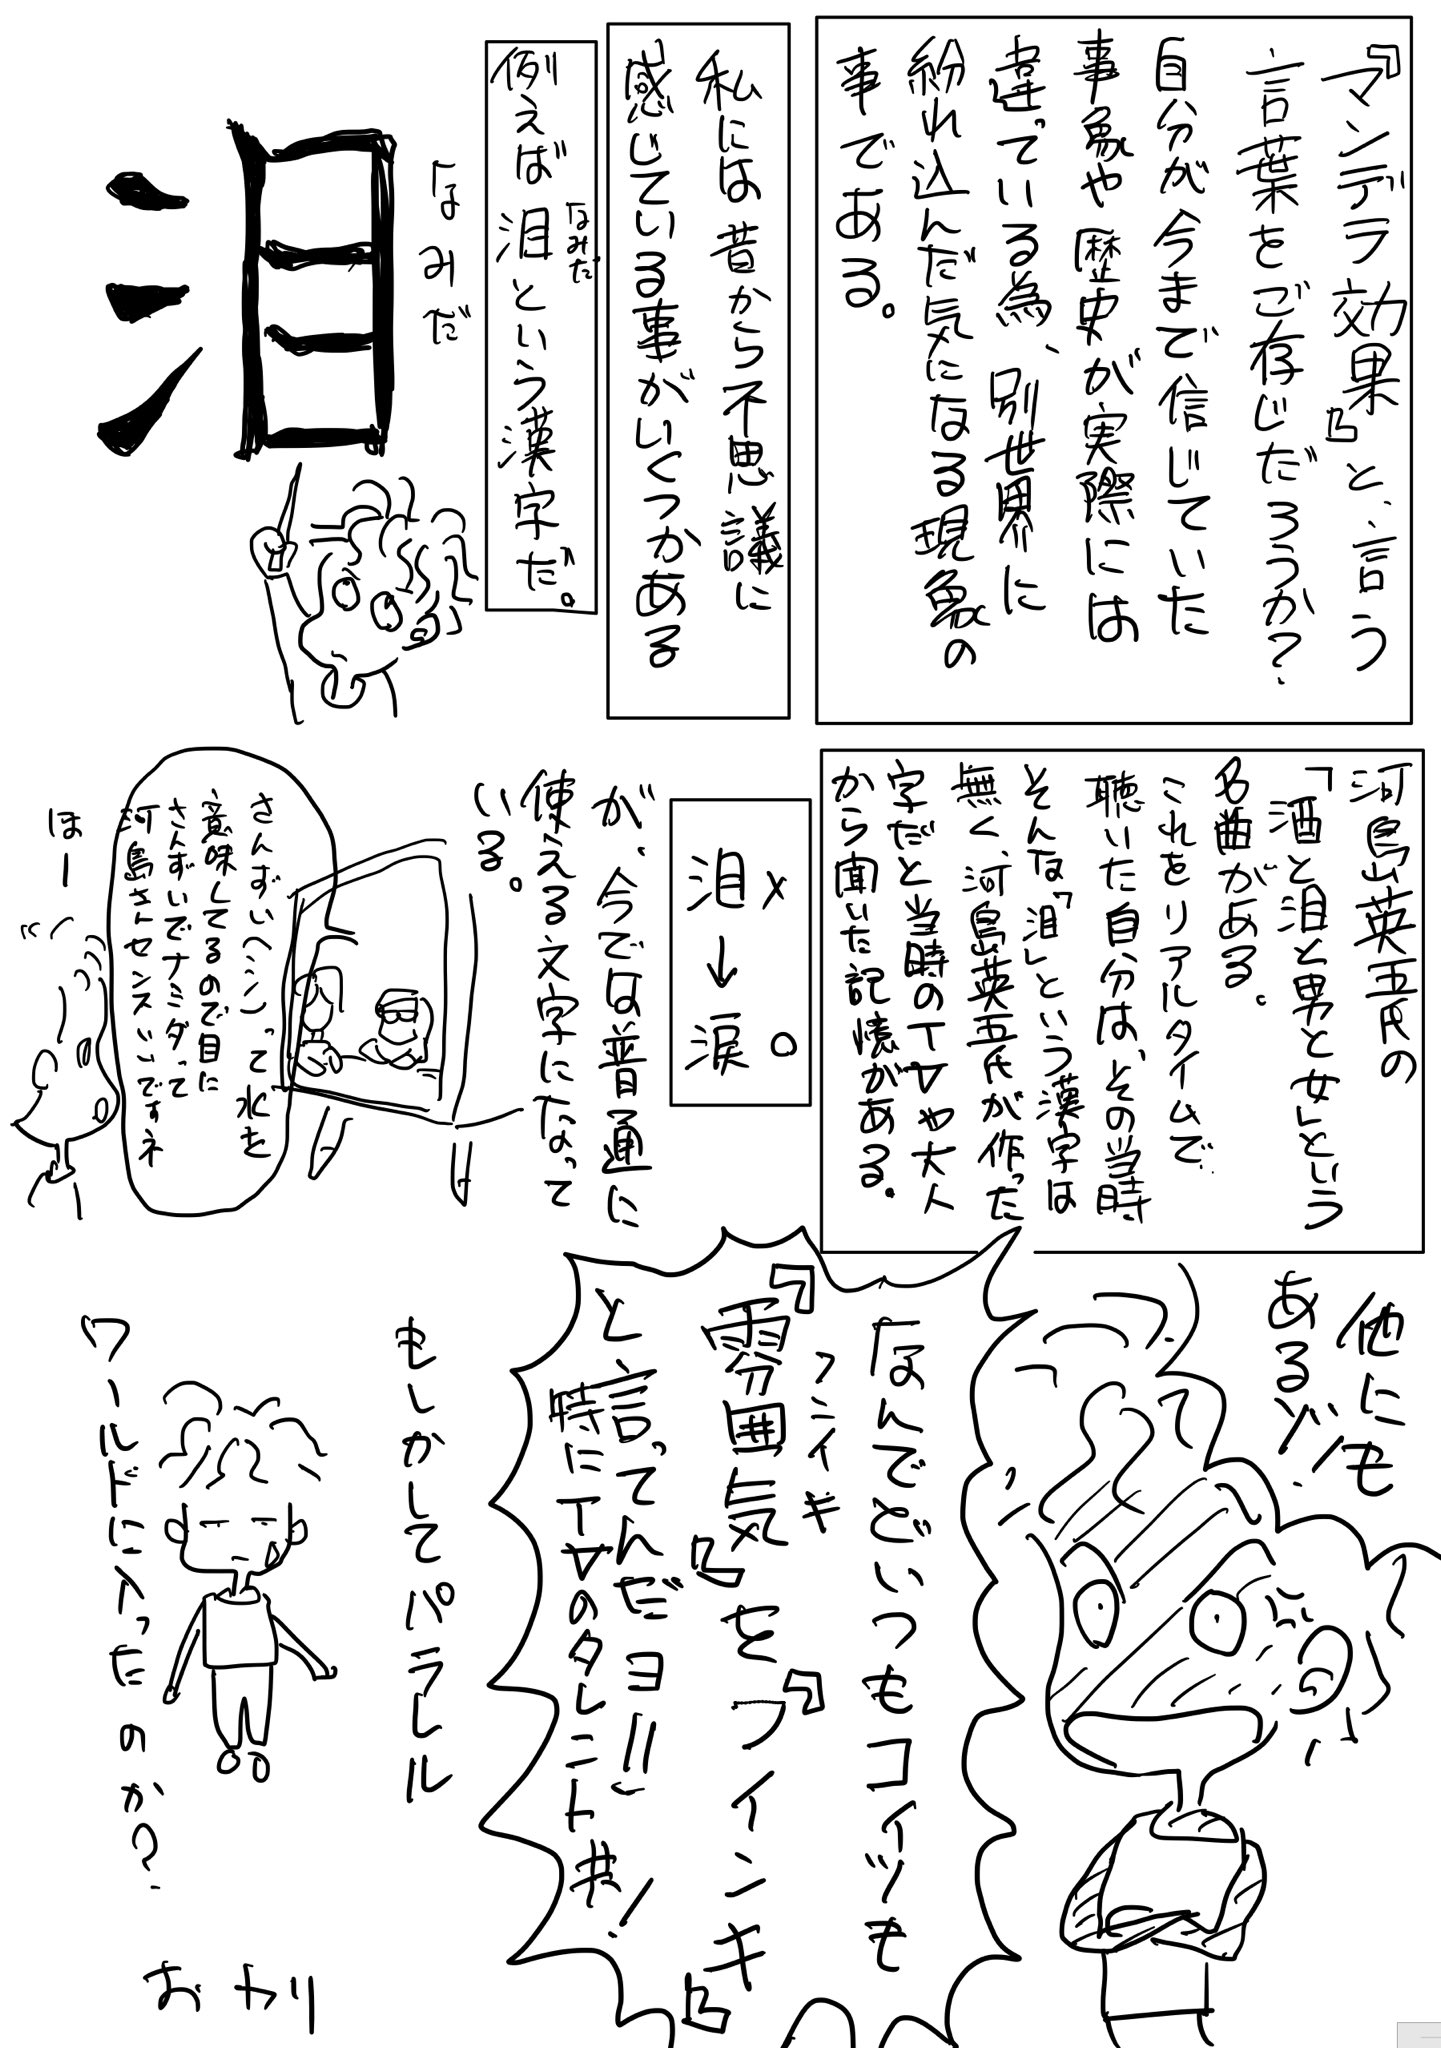 『マンデラ効果』と、言う
言葉をご存じだろうか?
自分が今まで信じていた
事象や歴史が実際には
違っている為、別世界に
紛れ込んだ気になる現象の
事である。
私には昔から不思議に
感じている事がいくつかある
例えば泪という漢字だ。
なみだ
なみだ
泪
河島英五氏の
「酒と泪と男と女」という
名曲がある。
これをリアルタイムで
聴いた自分は、その当時
そんな「泪」という漢字は
無く、河島英五氏が作った
字だと当時のTVや大人
から聞いた記憶がある。
泪×
↓
涙○
が、今では普通に
使える文字になって
いる。
さんずい(シ)って水を
意味してるので目に
さんずいでナミダって
河島さんセンスいいですネ
ほー
他にも
あるゾ!!
なんでどいつもコイツも
『雰囲気』を『フインキ』
フンイキ
と言ってんだヨ!!
特にTVのタレント共!
もしかしてパラレル
ワールドに入ったのか?
おわり